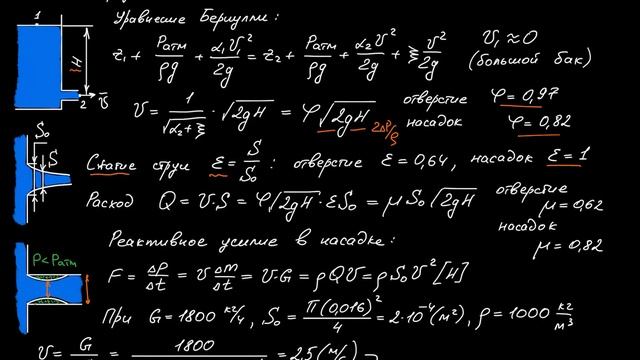 Уравнение Бернулли:
1
z₁ + Pатм/ρg + α₁v₁²/2g = z₂ + Pатм/ρg + α₂v²/2g + ξ v²/2g
v₁ ≈ 0
(большой бак)
H
2 v̄
v = 1/√(α₂+ξ) · √2gH = φ√2gH
2ΔP/ρ
отверстие φ = 0,97
насадок φ = 0,82
S₀
S
Сжатие струи ε = S/S₀ : отверстие ε = 0,64, насадок ε = 1
Расход Q = v·S = φ√2gH · εS₀ = μS₀√2gH
отверстие μ = 0,62
насадок μ = 0,82
Реактивное усилие в насадке:
P<Pатм
F = ΔP/Δt = v Δm/Δt = v·G = ρQv = ρS₀v² [Н]
При G = 1800 кг/ч, S₀ = π(0,016)²/4 = 2·10⁻⁴ (м²), ρ = 1000 кг/м³
v = G = 1800 = 2,5 (м/